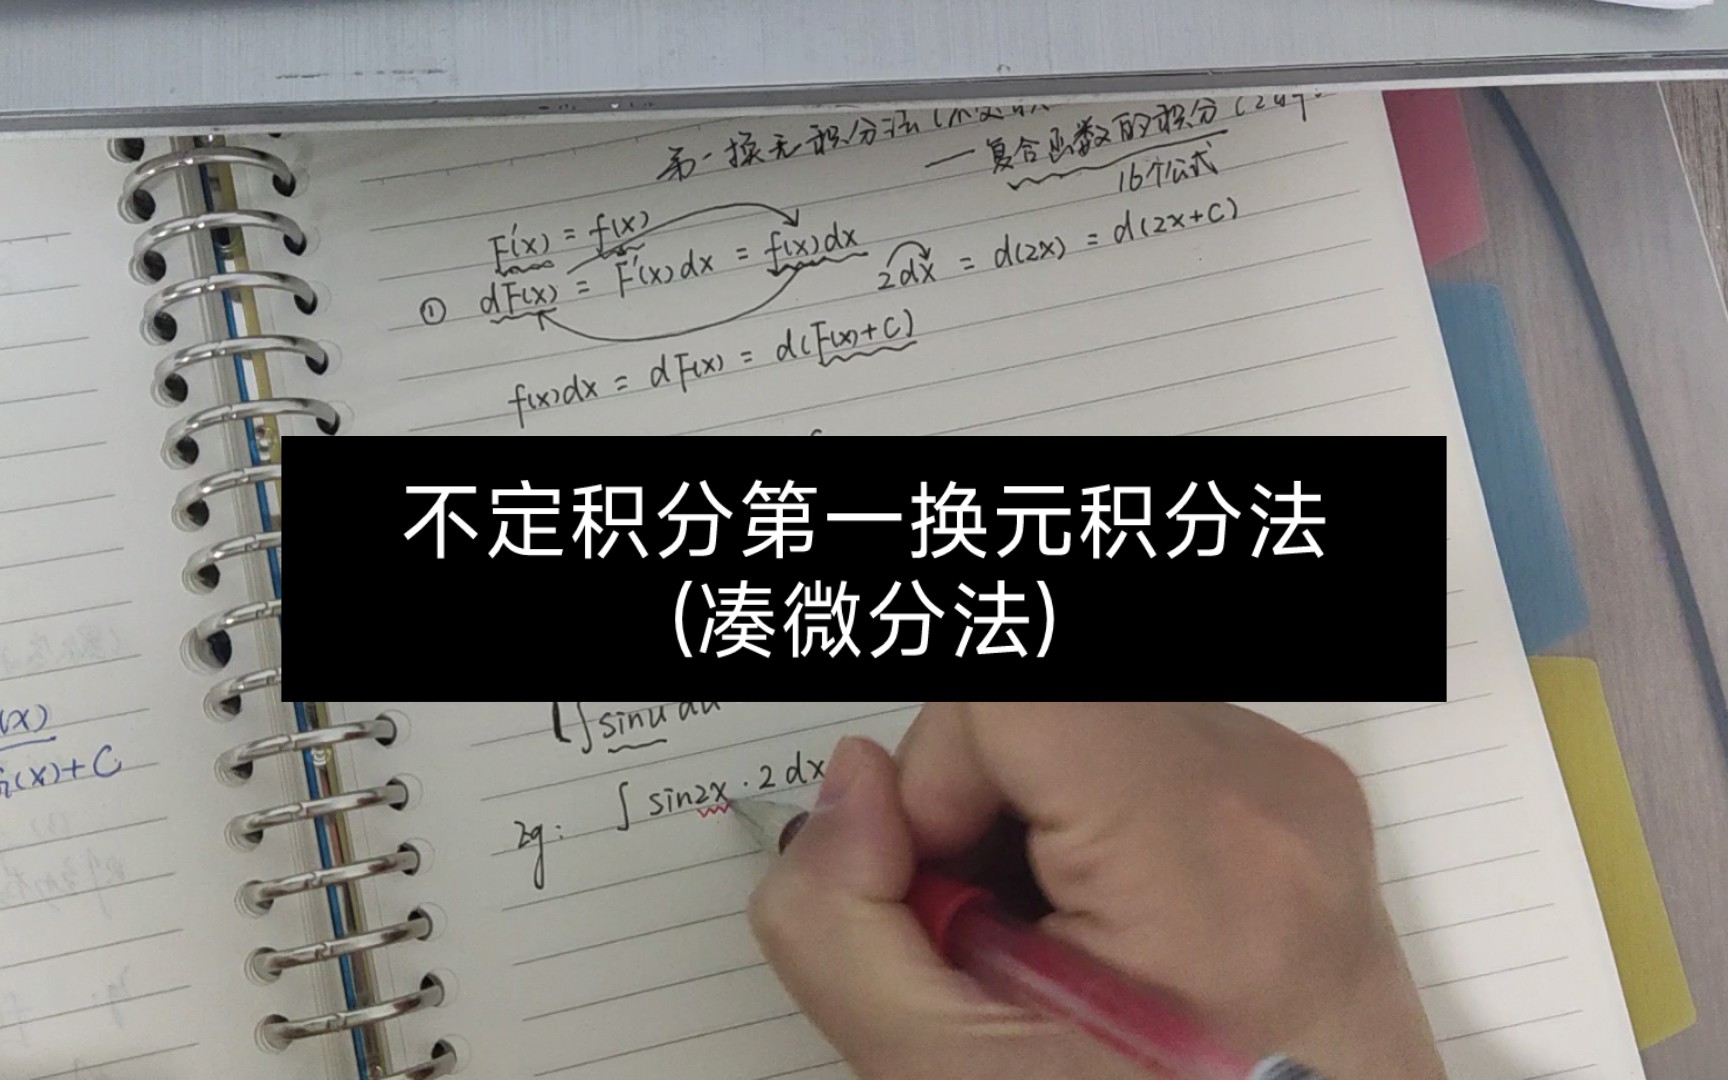 第一换元积分法
—复合函数的积分
16个公式
F'(x) = f(x)
① dF(x) = F'(x)dx = f(x)dx
2dx = d(2x) = d(2x+C)
f(x)dx = dF(x) = d(F(x)+C)
不定积分第一换元积分法
(凑微分法)
∫sinu du
eg: ∫ sin2x · 2 dx
(x)
(x)+C